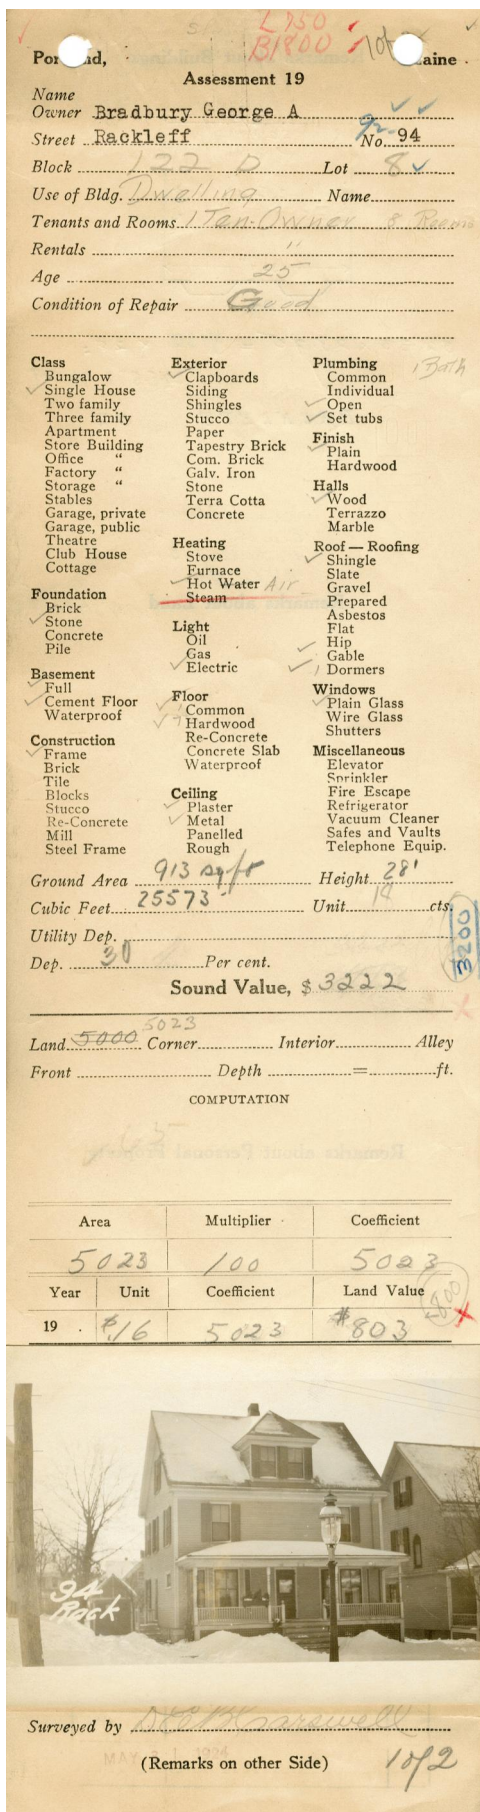 L 750
B 1800 1 of
Portland, Maine
Assessment 19
Name
Owner Bradbury George A
Street Rackleff No. 94
Block 122 D Lot 8
Use of Bldg. Dwelling Name
Tenants and Rooms 1 Ten-Owner 8 Rooms
Rentals "
Age 25
Condition of Repair Good
Class
Bungalow
Single House
Two family
Three family
Apartment
Store Building
Office "
Factory "
Storage "
Stables
Garage, private
Garage, public
Theatre
Club House
Cottage
Foundation
Brick
Stone
Concrete
Pile
Basement
Full
Cement Floor
Waterproof
Construction
Frame
Brick
Tile
Blocks
Stucco
Re-Concrete
Mill
Steel Frame
Exterior
Clapboards
Siding
Shingles
Stucco
Paper
Tapestry Brick
Com. Brick
Galv. Iron
Stone
Terra Cotta
Concrete
Heating
Stove
Furnace
Hot Water Air
Steam
Light
Oil
Gas
Electric
Floor
Common
Hardwood
Re-Concrete
Concrete Slab
Waterproof
Ceiling
Plaster
Metal
Panelled
Rough
Plumbing 1 Bath
Common
Individual
Open
Set tubs
Finish
Plain
Hardwood
Halls
Wood
Terrazzo
Marble
Roof — Roofing
Shingle
Slate
Gravel
Prepared
Asbestos
Flat
Hip
Gable
1 Dormers
Windows
Plain Glass
Wire Glass
Shutters
Miscellaneous
Elevator
Sprinkler
Fire Escape
Refrigerator
Vacuum Cleaner
Safes and Vaults
Telephone Equip.
Ground Area 913 sq ft Height 28'
Cubic Feet 25573 Unit 18 cts.
Utility Dep.
3200
Dep. 30 Per cent.
Sound Value, $ 3222
5023
Land 5000 Corner Interior Alley
Front Depth = ft.
COMPUTATION
Area Multiplier Coefficient
5023 100 5023
Year Unit Coefficient Land Value
800
19 $.16 5023 $803
94
Rack
Surveyed by
(Remarks on other Side) 1 of 2